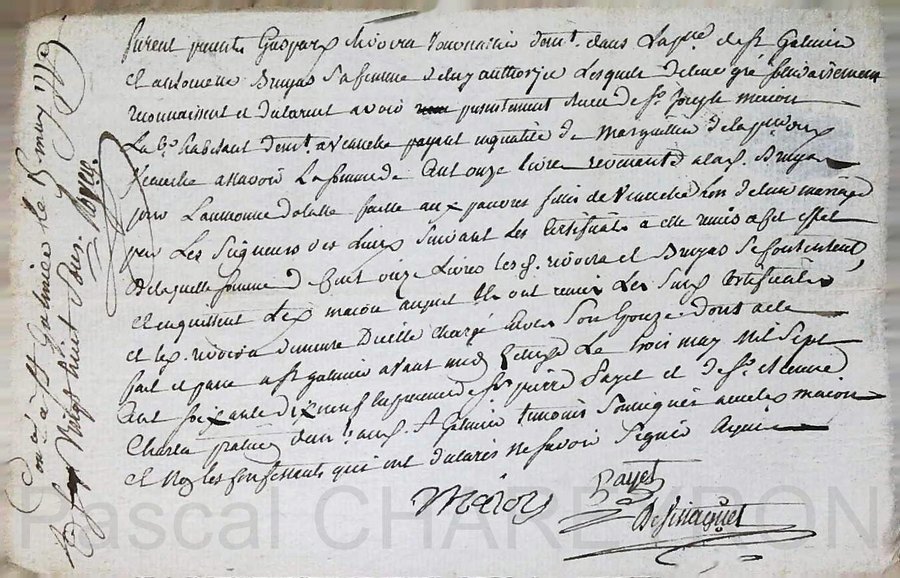 furent presents Gaspard Rivoira Tonnaire demt. dans la pse. de st Galmier
et antoinette Bruyas sa femme de luy authorisée Lesquels de leur gré
reconnaissent et declarent avoir presentement receu de Sr. Joseph marion
Lab. habitant demt. a Veauche payant en qualité de Marguillier de la psse dud.
Veauche a savoir La somme de Cent onze livres a lad. Bruyas
pour L'aumone d'elle faitte aux pauvres filles de Veauche Lors de leur mariage
par Les Seigneurs des Lieux Suivant Les Certificats a elle remis a cet effet
de laquelle somme de Cent onze Livres les d. rivoira et Bruyas Se contentent,
et en quittent led. marion auquel ils ont remis Les Susd. Certificats
et led. rivoira demeure D'icelle chargé Envers Son Epouze. Dont acte
fait et passé a st galmier avant midy L'etude Le trois may Mil Sept
Cent soixante dix neuf En presence de Sr. pierre Payet et de Sr. etienne
Charla praticien demt. aud. St Galmier temoins Soussignés avec led. marion
et Non les confessants qui ont declarés ne savoir Signer
Marion
Payet
Desinaquet
Con.lé à St Galmier le 15 may 1779
Vingt huit sous.